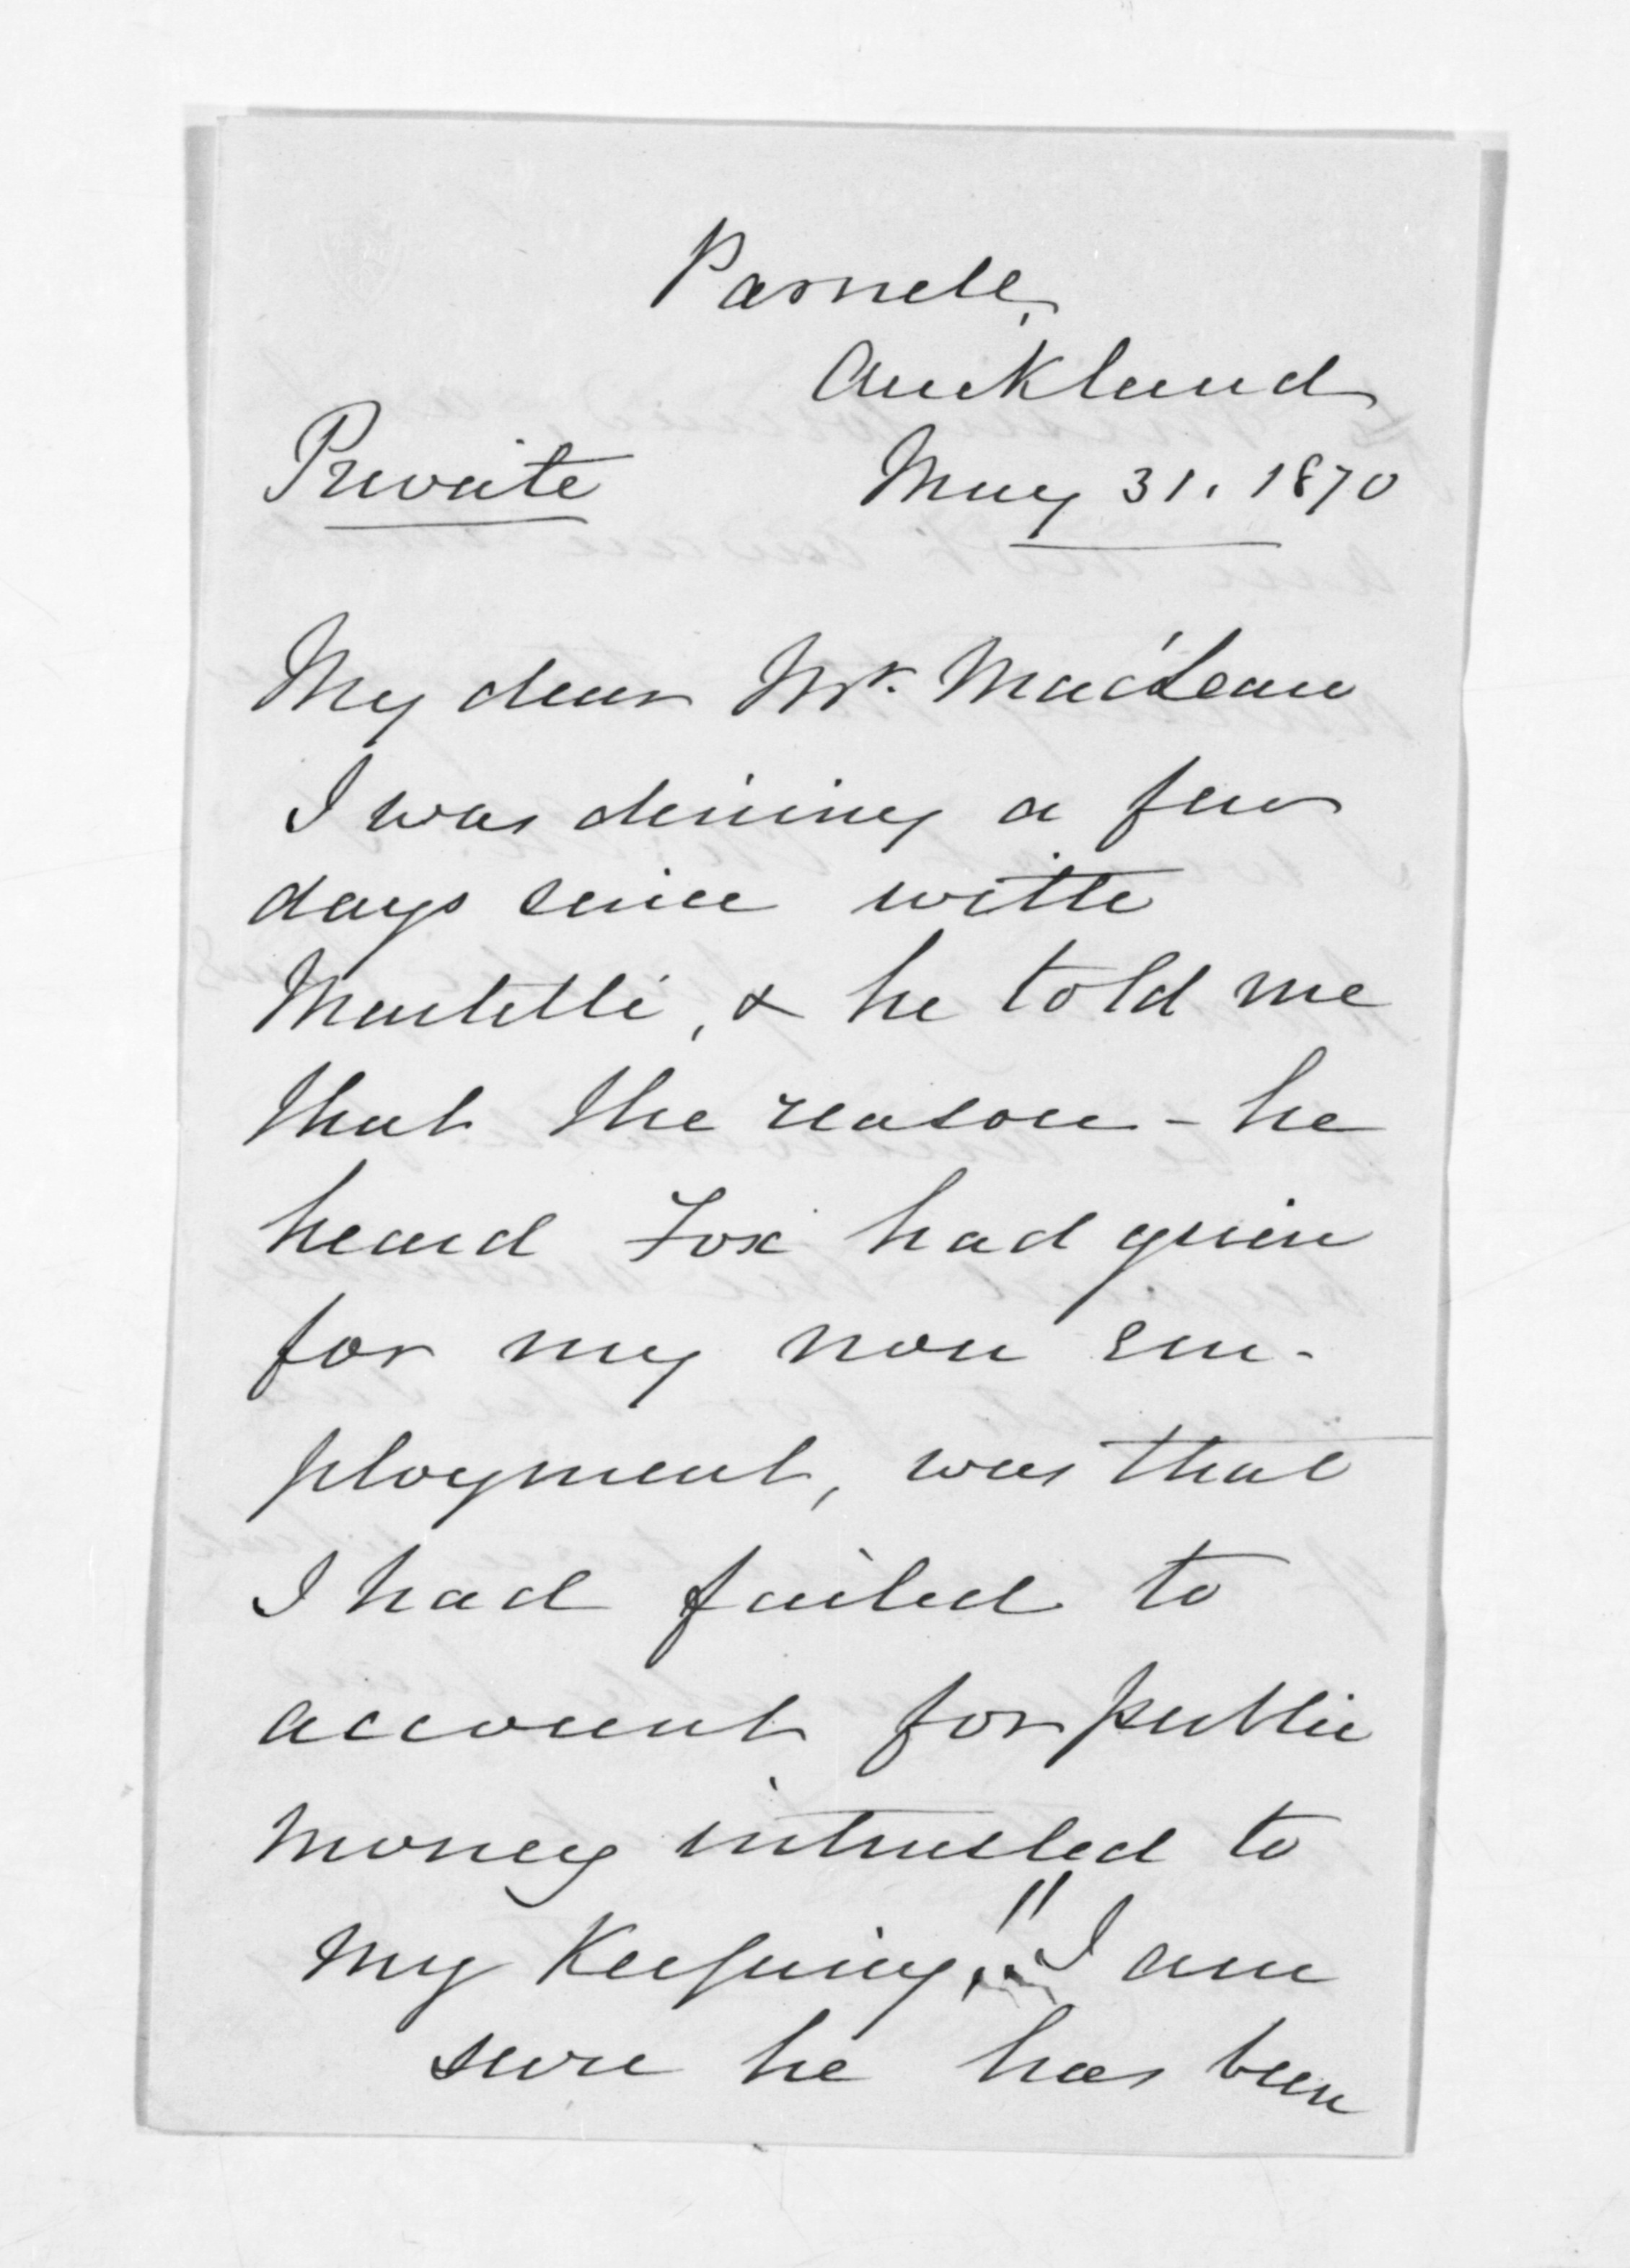 Parnell,
Auckland
Private May 31. 1870
My dear Mr. Mac'Lean
I was dining a few
days since with
Martelli, & he told me
that the reason - he
heard Fox had given
for my non em-
ployment, was that
I had failed to
account for public
money intrusted to
my keeping!! I am
sure he has been